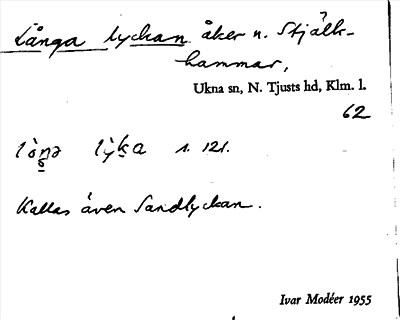 Långa lyckan åker n. Stjälk-
hammar,
Ukna sn, N. Tjusts hd, Klm. l.
62
1. 121.
Kallas även Sandlyckan.
Ivar Modéer 1955